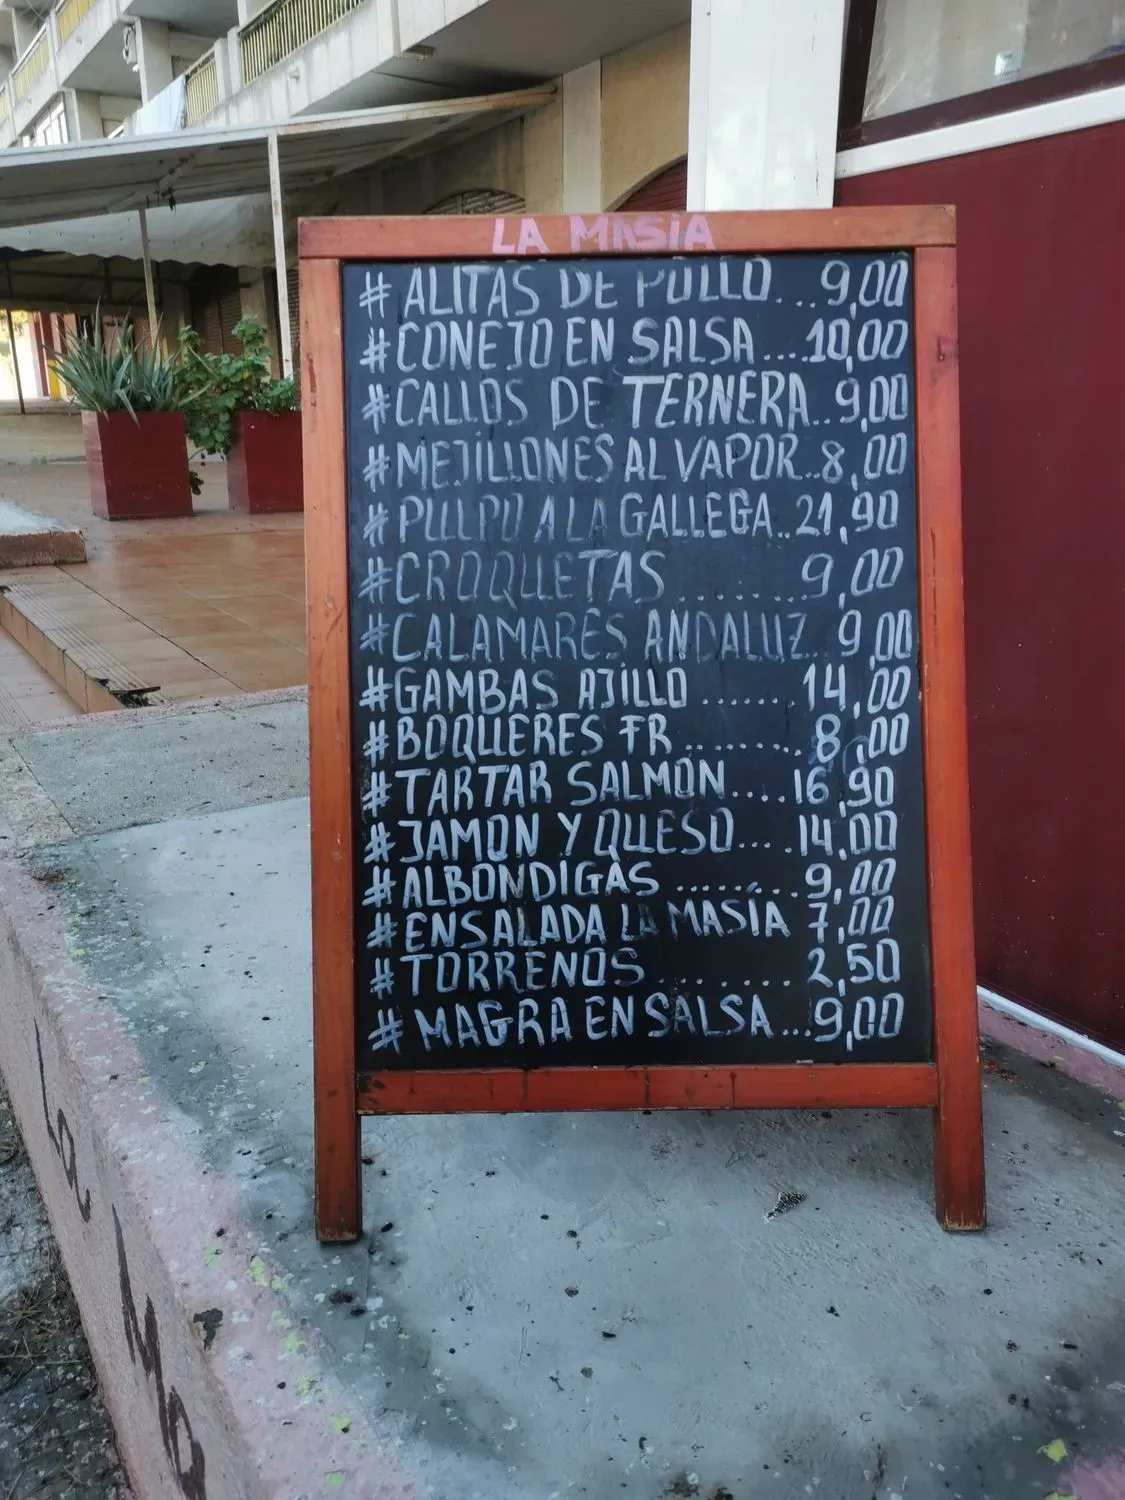 LA MASÍA
# ALITAS DE POLLO....9,00
# CONEJO EN SALSA....10,00
# CALLOS DE TERNERA..9,00
# MEJILLONES AL VAPOR..8,00
# PULPO A LA GALLEGA..21,90
# CROQUETAS ........9,00
# CALAMARES ANDALUZ..9,00
# GAMBAS AJILLO .......14,00
# BOQUERES FR.........8,00
# TARTAR SALMON....16,90
# JAMON Y QUESO....14,00
# ALBONDIGAS .........9,00
# ENSALADA LA MASÍA 7,00
# TORRENOS ........2,50
# MAGRA EN SALSA...9,00